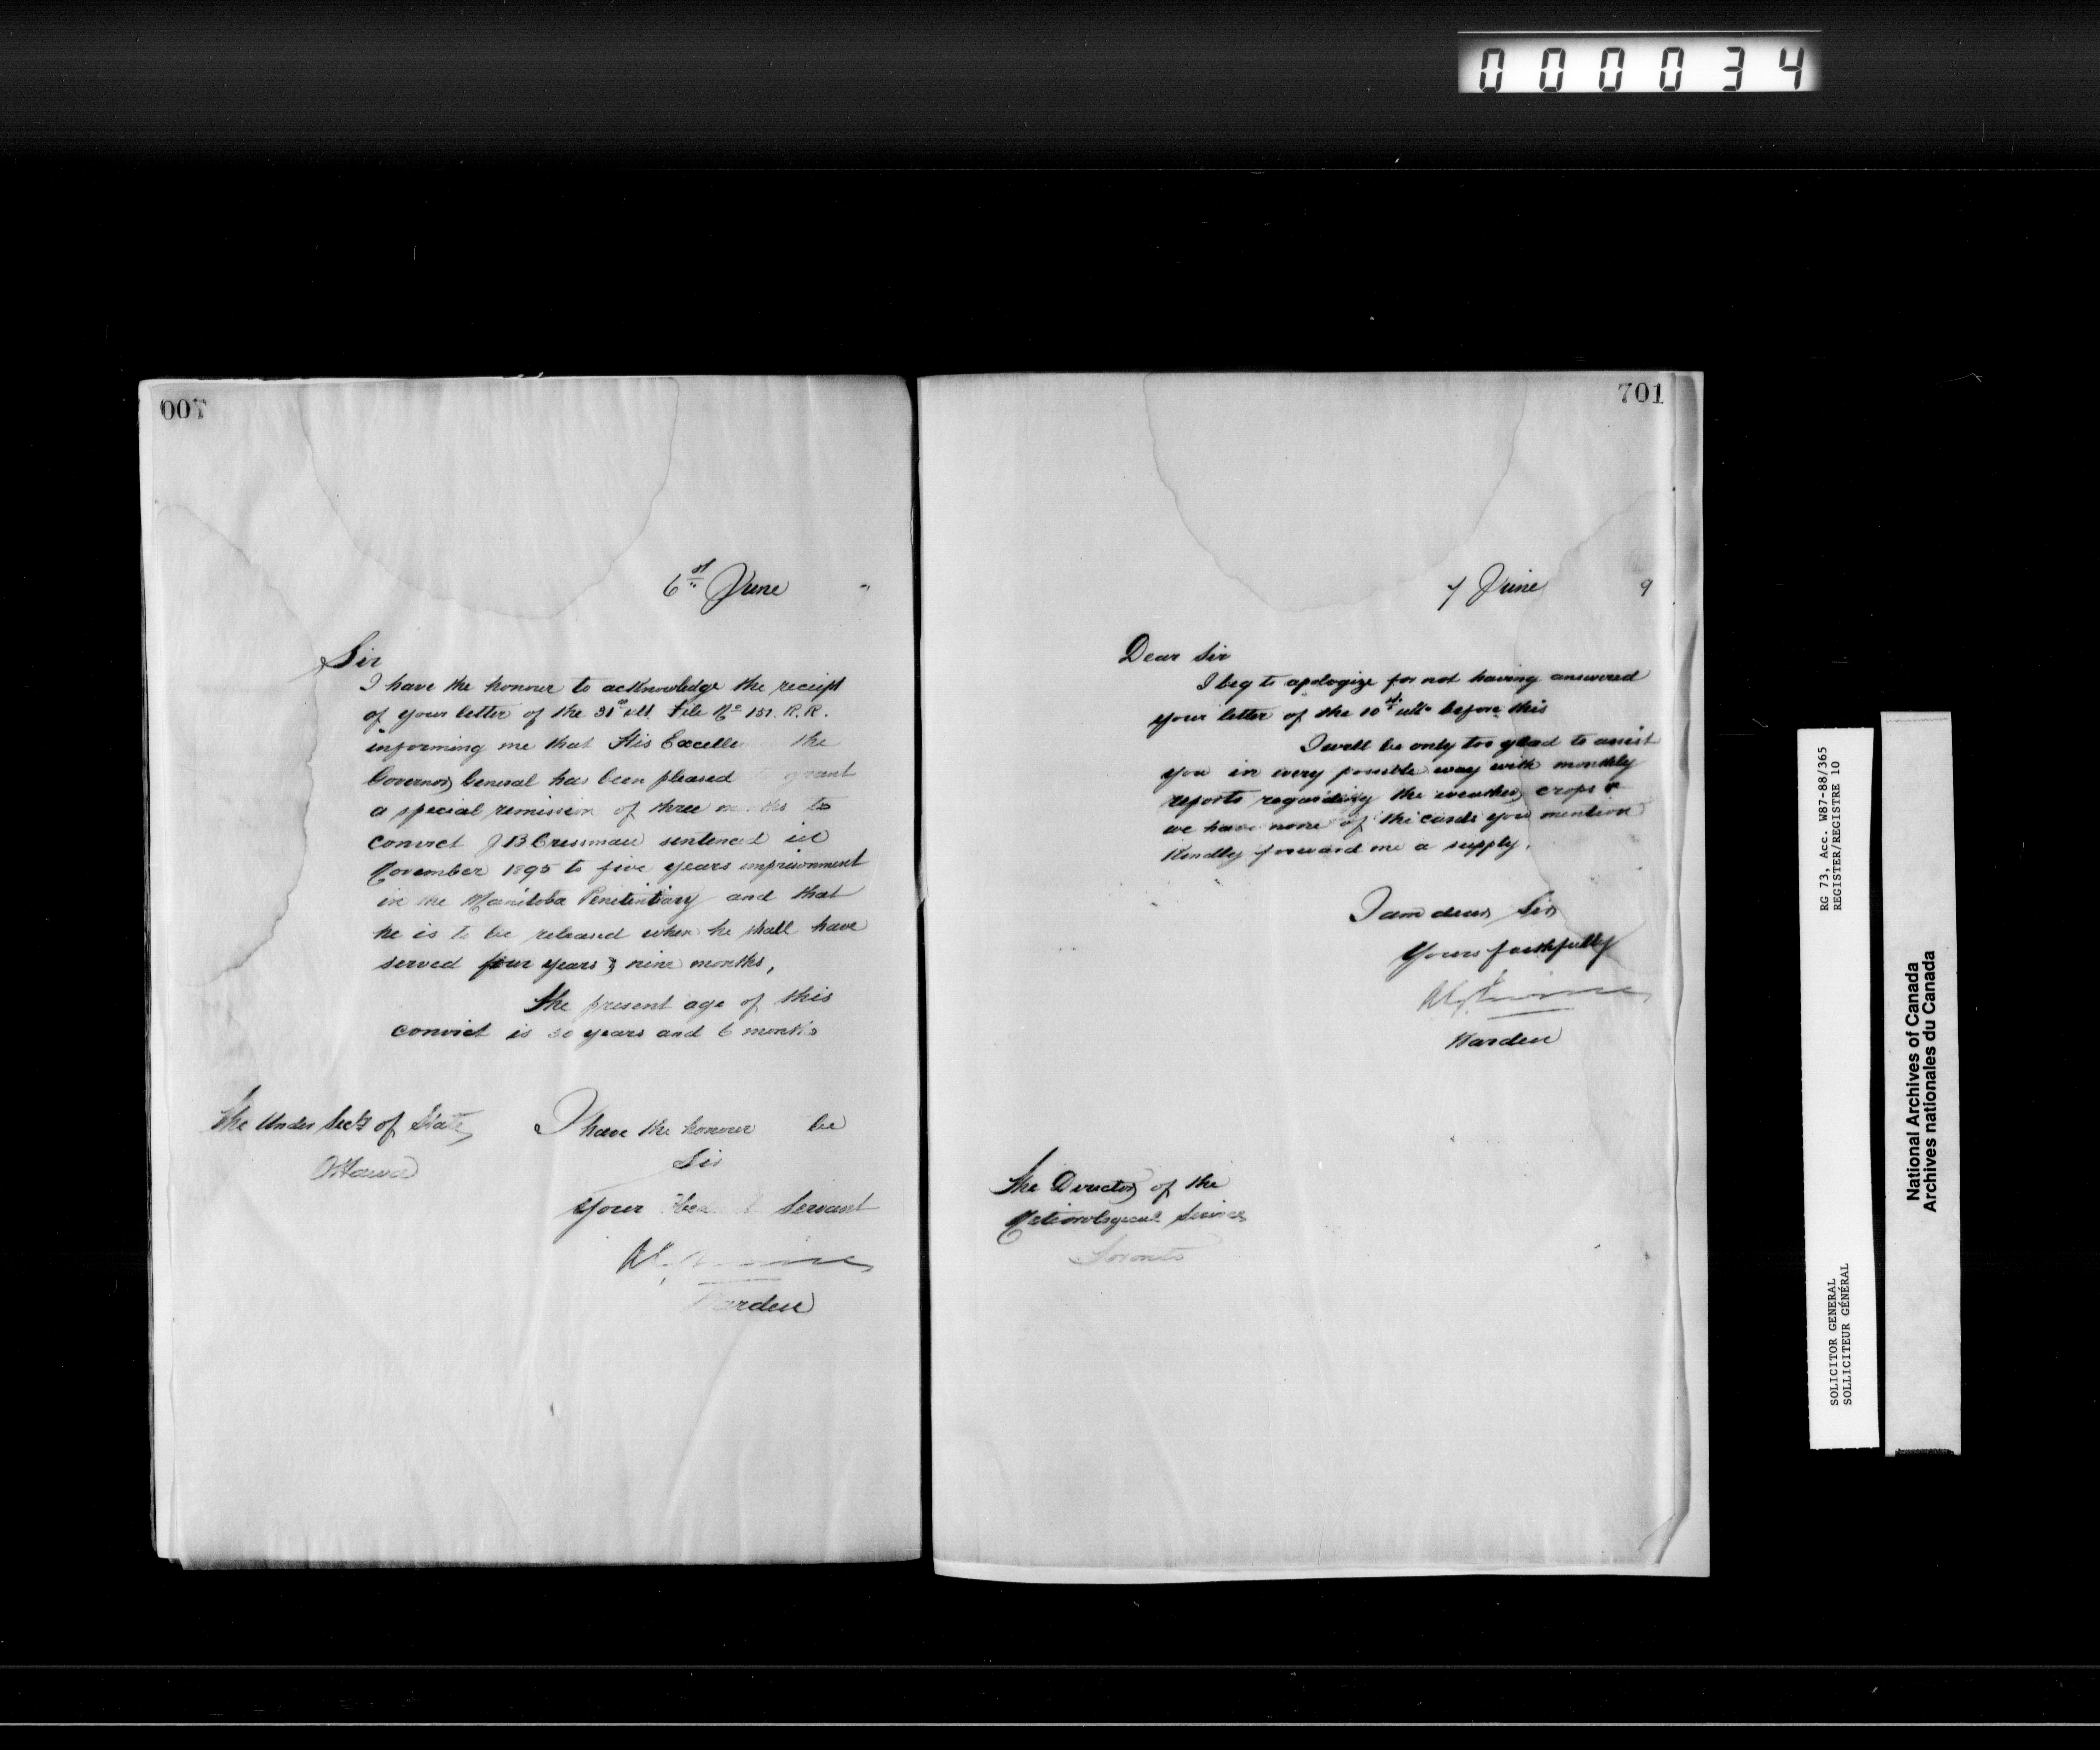 000034
700
6th June "
Sir
I have the honour to acknowledge the receipt
of your letter of the 31st ult File No 151. R.R.
informing me that His Excelle the
Governor General has been pleased to grant
a special remission of three months to
convict J B Cressman sentenced in
November 1895 to five years imprisonment
in the Manitoba Penitentiary and that
he is to be released when he shall have
served four years & nine months,
The present age of this
convict is 30 years and 6 months
The Under Secty of State
Ottawa
I have the honour be
Sir
Your Servant
Warden
701
7 June 9
Dear Sir
I beg to apologize for not having answered
your letter of the 10th ulto before this
I will be only too glad to assist
you in every possible way with monthly
reports regarding the weather, crops &
we have none of the cards you mention
Kindly forward me a supply.
I am dear Sir
Yours faithfully
Warden
The Director of the
Meteorological Service
Toronto
RG 73, Acc. W87-88/365
REGISTER/REGISTRE 10
SOLICITOR GENERAL
SOLLICITEUR GÉNÉRAL
National Archives of Canada
Archives nationales du Canada